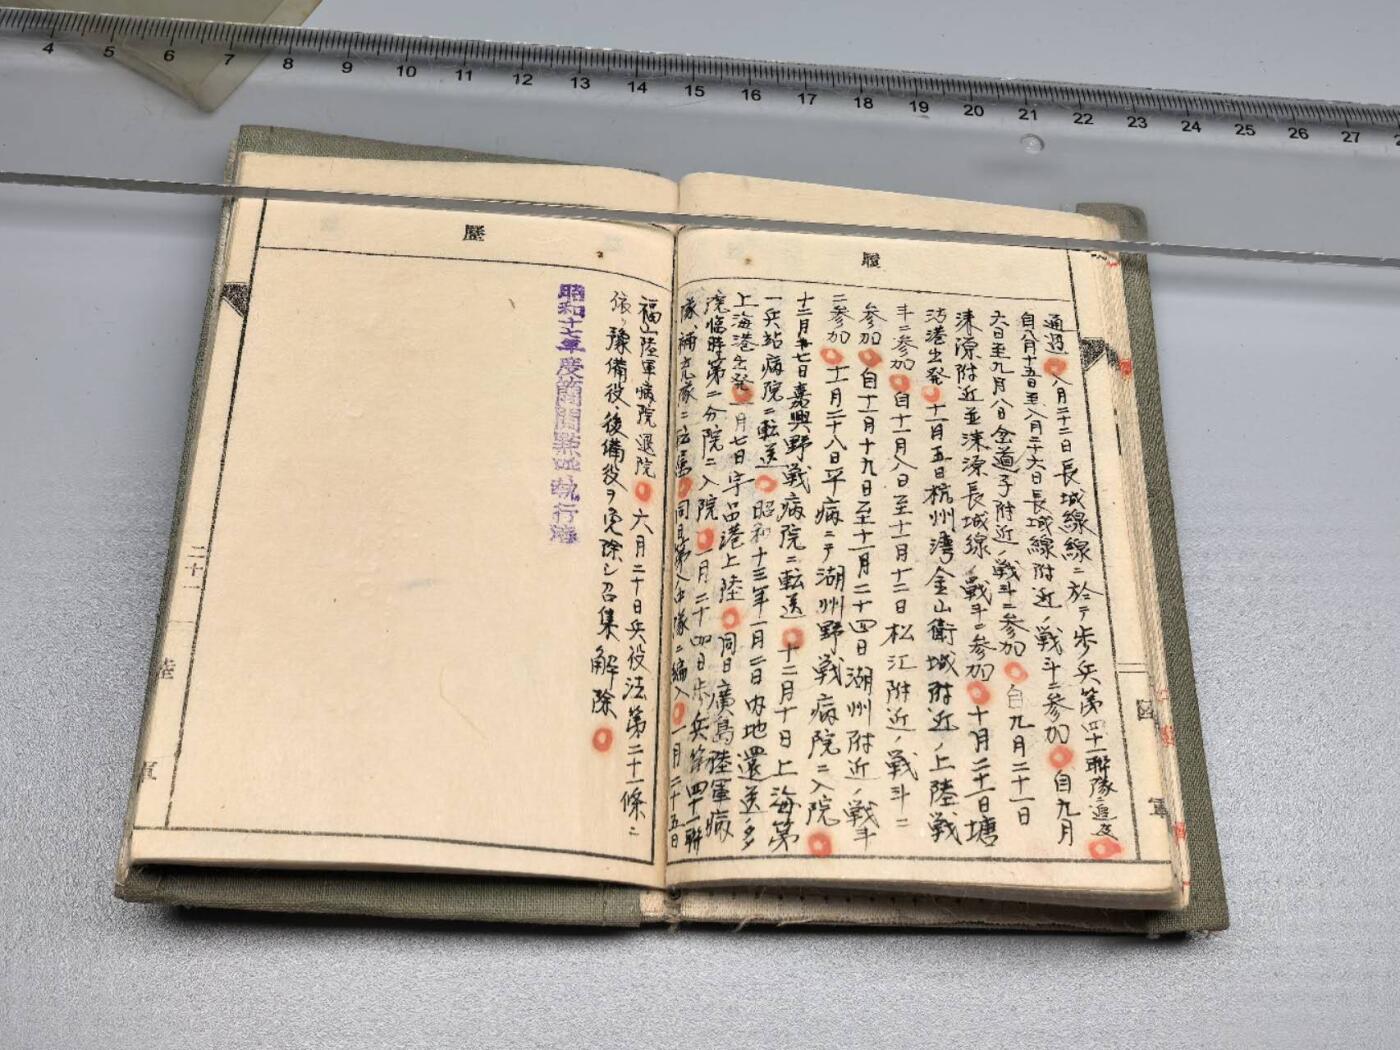 4 5 6 7 8 9 10 11 12 13 14 15 16 17 18 19 20 21 22 23 24 25 26 27
履
通過〇八月二十二日長城線線ニ於テ歩兵第四十一聯隊ニ追及〇
自八月十五日至八月二十六日長城線附近ノ戦斗ニ参加〇自九月
六日至九月八日金道子附近ノ戦斗ニ参加〇自九月二十一日
涞源附近並涞源長城線ノ戦斗ニ参加〇十月二十一日塘
沽港出発〇十一月五日杭州湾金山衛城附近ノ上陸戦
斗ニ参加〇自十一月八日至十一月十二日松江附近ノ戦斗ニ
参加〇自十一月十九日至十一月二十四日湖州附近ノ戦斗
ニ参加〇十一月二十八日平病ニテ湖州野戦病院ニ入院〇
十二月七日嘉興野戦病院ニ転送〇十二月十日上海第
一兵站病院ニ転送〇昭和十三年一月二日内地還送ノ多
上海港出発〇一月七日宇品港上陸〇同日廣島陸軍病
院臨時第二分院ニ入院〇一月二十四日歩兵第四十一聯
隊補充隊ニ転属〇同日第八中隊ニ編入〇一月二十五日
歴
福山陸軍病院退院〇六月二十日兵役法第二十一條ニ
依リ豫備役、後備役ヲ免除シ召集解除〇
昭和十七年度簡閲點呼執行濟
二十一
陸
軍